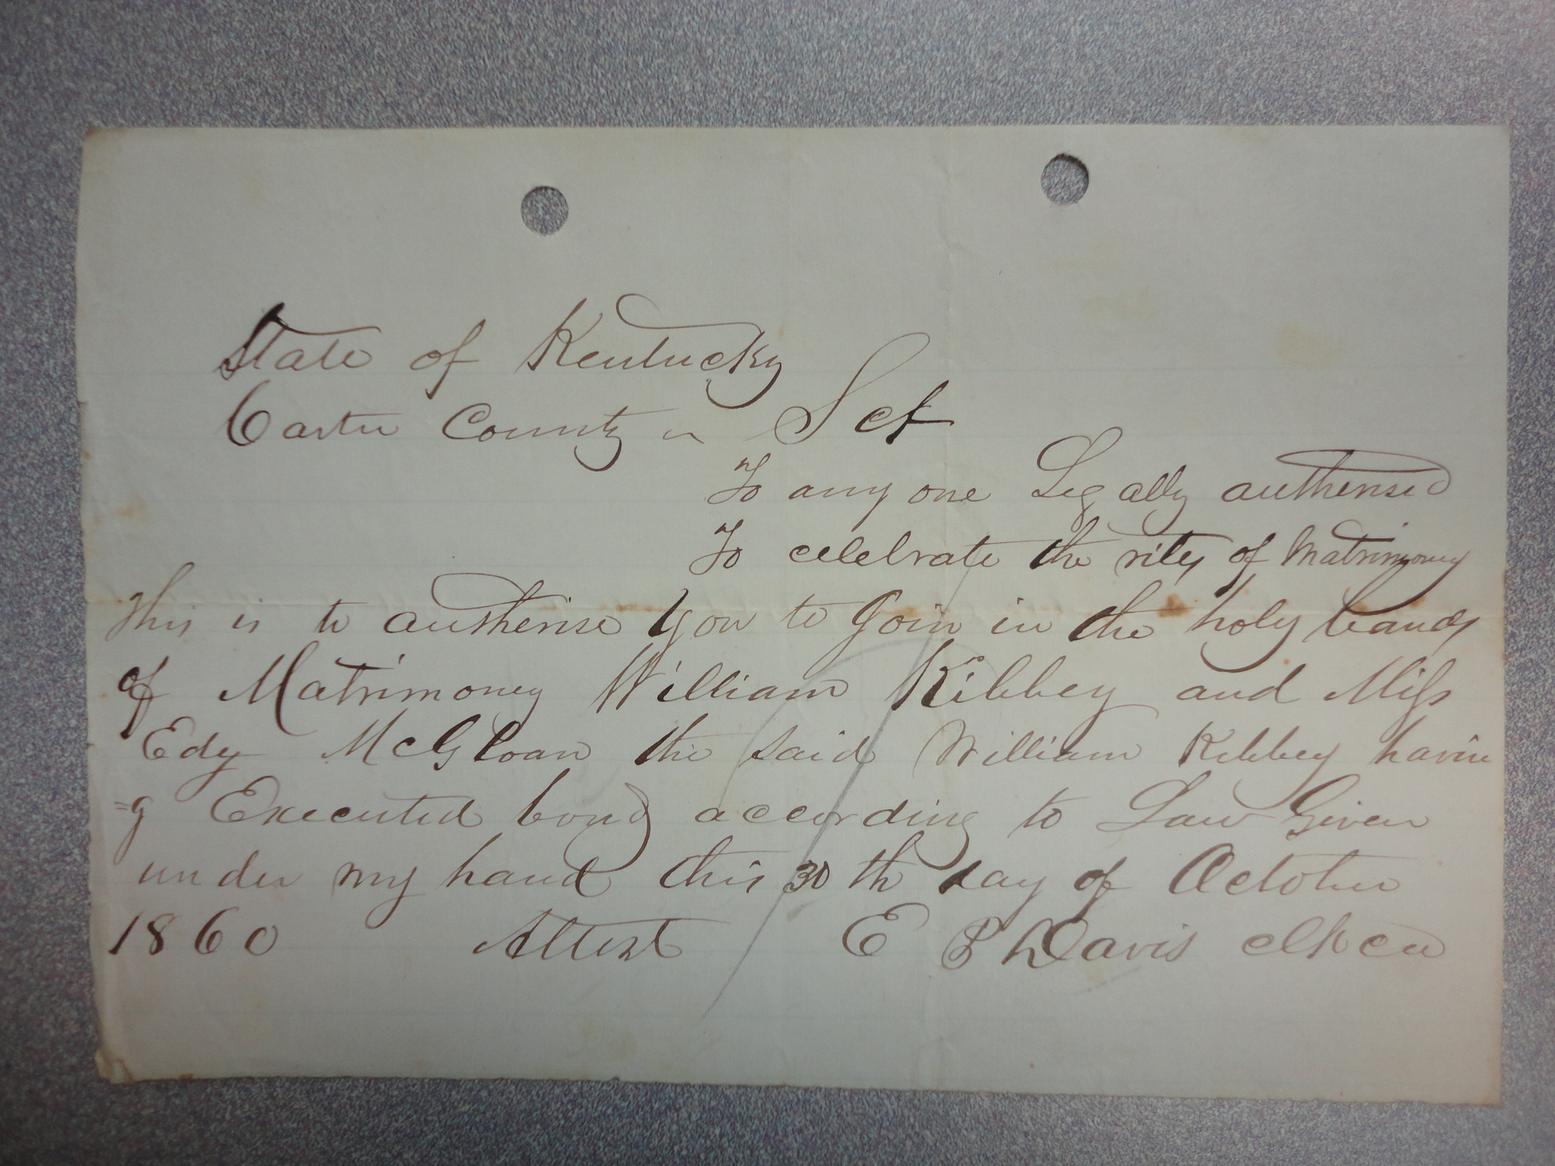 State of Kentucky
Carter County Sct
To any one Legally authorised
To celebrate the rites of Matrimony
This is to authorise you to Join in the holy bands
of Matrimony William Kibbey and Miss
Edy McGloan the said William Kibbey havin
=g Executed bond according to Law Given
under my hand this 30th day of October
1860 Attest E P Davis clk cc